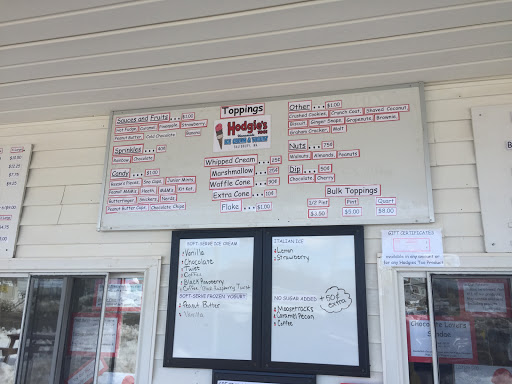 Toppings
Sauces and Fruits ... $1.00
Hot Fudge Caramel Pineapple Strawberry
Peanut Butter Cold Chocolate Banana
Sprinkles ... 40¢
Rainbow Chocolate
Candy ... $1.00
Reese's Pieces Sno Caps Junior Mints
Peanut M&M's Heath M&M's Kit Kat
Butterfinger Snickers Nerds
Peanut Butter Cups Chocolate Chips
Hodgie's
ICE CREAM & YOGURT
Whipped Cream ... 25¢
Marshmallow ... 25¢
Waffle Cone ... 90¢
Extra Cone ... 10¢
Flake ... $1.00
Other ... $1.00
Crushed Cookies Crunch Coat Shaved Coconut
Biscuit Ginger Snaps Grapenuts Brownie
Graham Cracker Malt
Nuts ... 75¢
Walnuts Almonds Peanuts
Dip ... 50¢
Chocolate Cherry
Bulk Toppings
1/2 Pint Pint Quart
$3.00 $5.00 $8.00
SOFT-SERVE ICE CREAM
Vanilla
Chocolate
Twist
Coffee
Black Raspberry
Coffee, Black Raspberry Twist
SOFT-SERVE FROZEN YOGURT
Peanut Butter
Vanilla
ITALIAN ICE
Lemon
Strawberry
NO SUGAR ADDED +50¢ extra
Moosetracks
Caramel Pecan
Coffee
GIFT CERTIFICATES
available in any amount or
for any Hodgies Ice Product
Chocolate Lover's
Sundae